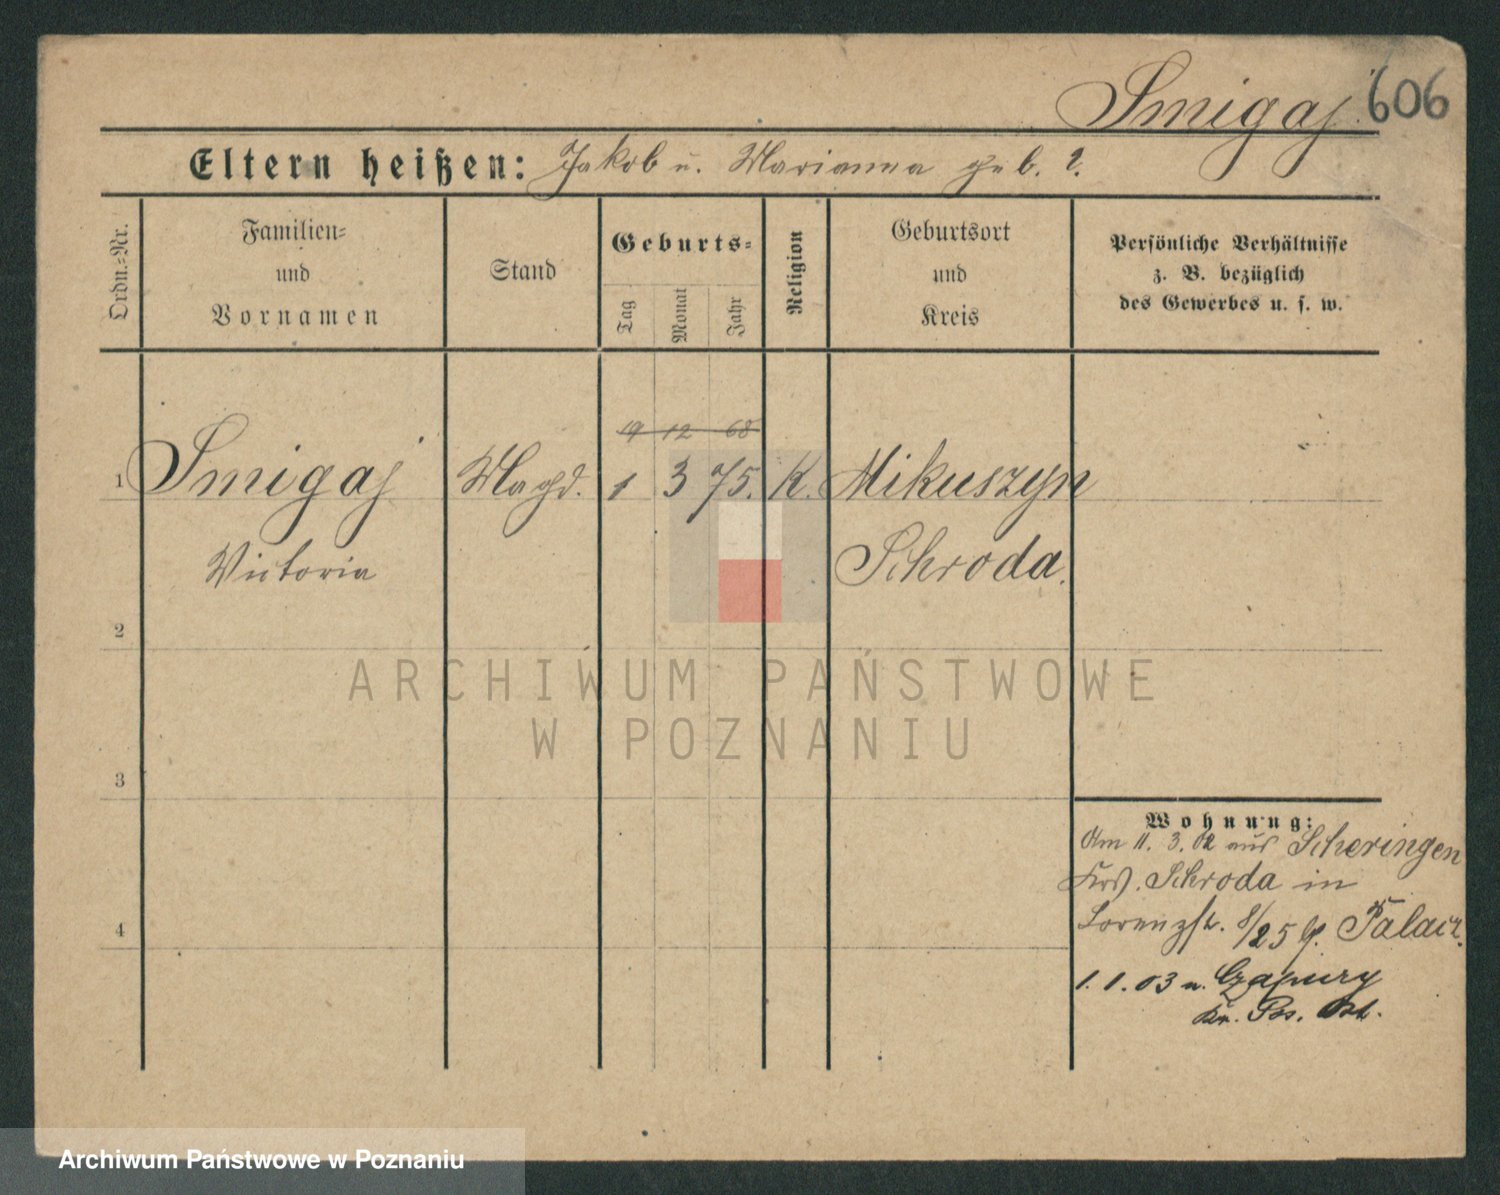 Smigaj 606
Eltern heißen: Jakob u. Marianna geb. ?
Ordn.-Nr.
Familien-
und
Vornamen
Stand
Geburts-
Tag
Monat
Jahr
Religion
Geburtsort
und
Kreis
Persönliche Verhältnisse
z. B. bezüglich
des Gewerbes u. s. w.
19 12 68
1 Smigaj Magd. 1 3 75. K. Mikuszyn
Victoria Schroda.
2
3
4
Wohnung:
Am 11. 3. 02 aus Scheringen
Krs. Schroda in
Lorenzstr. 8/25 b. Palacz.
1. 1. 03 n. Czapury
Kr. Pos. Ost.
ARCHIWUM PAŃSTWOWE
W POZNANIU
Archiwum Państwowe w Poznaniu